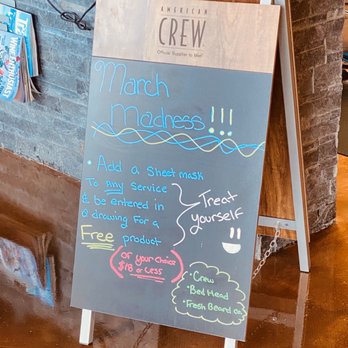 AMERICAN
CREW
Official Supplier to Men
March
Madness!!!
• Add a Sheet mask
To Any Service
& be entered in
a drawing for a
Free product
of your choice
$18 or Less
Treat
yourself
• Crew
• Bed Head
• Fresh Beard co.